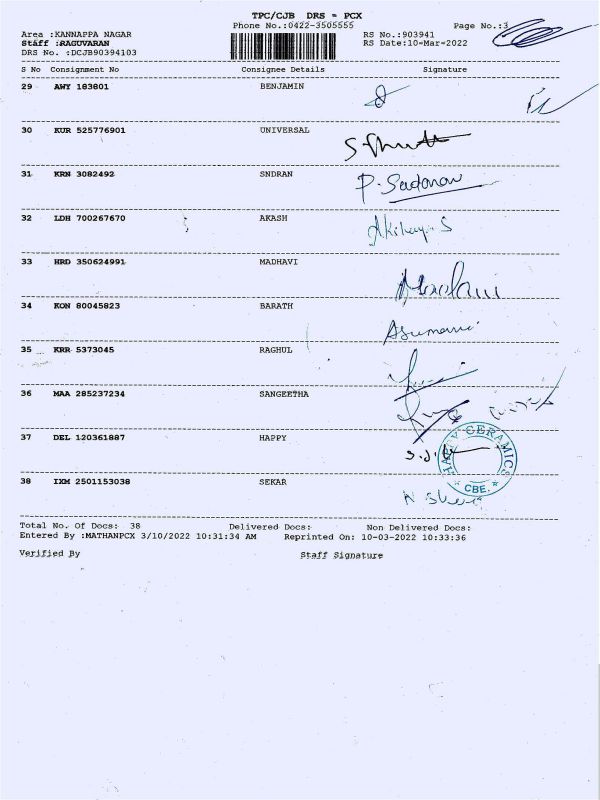 TPC/CJB DRS - PCX
Phone No.:0422-3505555 Page No.:3
Area :KANNAPPA NAGAR RS No.:903941
Staff :RAGUVARAN RS Date:10-Mar-2022
DRS No. :DCJB90394103
S No Consignment No Consignee Details Signature
29 AWY 183601 BENJAMIN
30 KUR 525776901 UNIVERSAL
31 KRN 3082492 SNDRAN P. Sadanan
32 LDH 700267670 AKASH
33 HRD 350624991 MADHAVI
34 KON 80045823 BARATH
35 KRR 5373045 RAGHUL
36 MAA 285237234 SANGEETHA
37 DEL 120361887 HAPPY HAPPY CERAMICS
38 IXM 2501153038 SEKAR CBE.
Total No. Of Docs: 38 Delivered Docs: Non Delivered Docs:
Entered By :MATHANPCX 3/10/2022 10:31:34 AM Reprinted On: 10-03-2022 10:33:36
Verified By Staff Signature